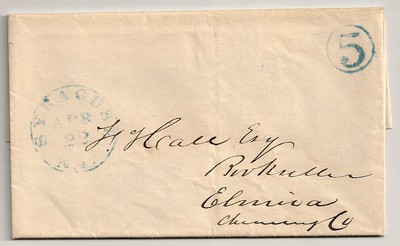 5
SYRACUSE
APR
22
N.Y.
F Hall Esq
Bookseller
Elmira
Chemung Co